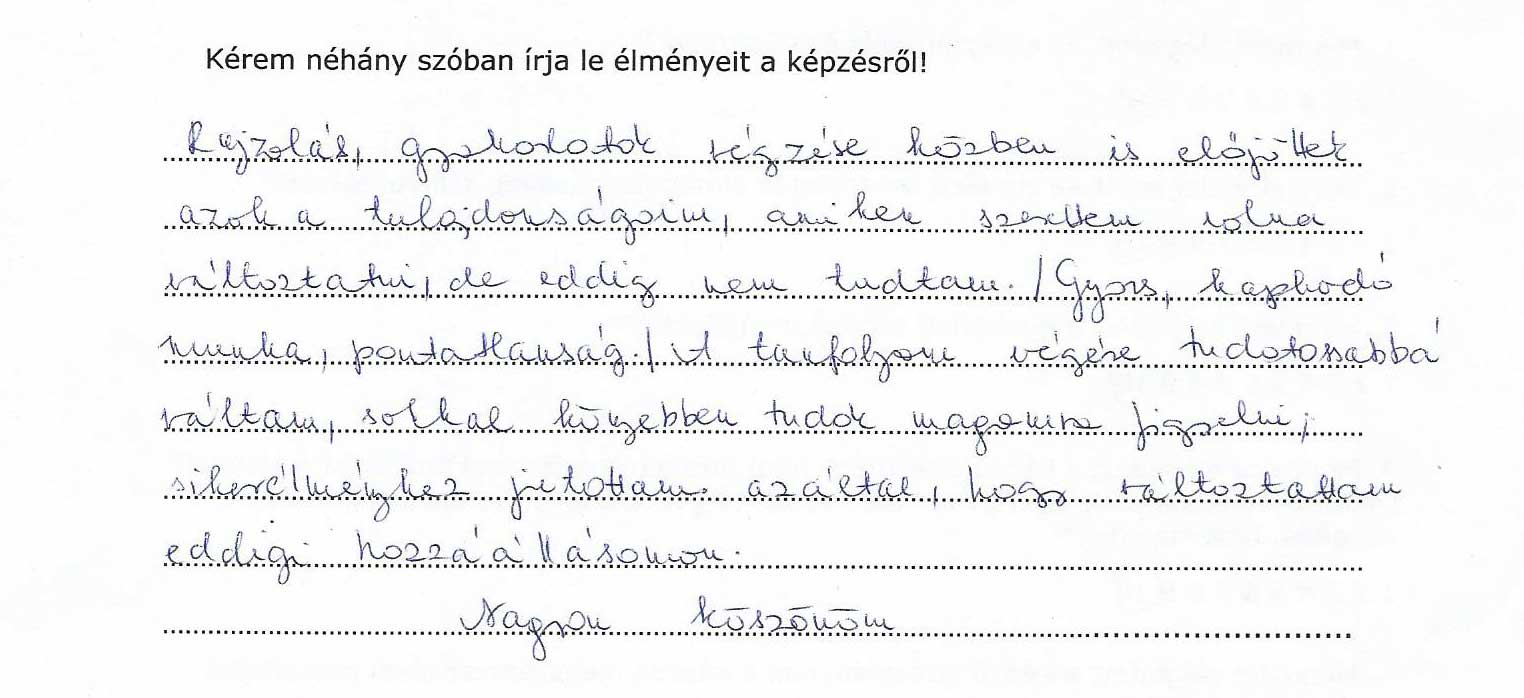 Kérem néhány szóban írja le élményeit a képzésről!
Rajzolás, gyakorlatok végzése közben is előjöttek
azok a tulajdonságaim, amiken szerettem volna
változtatni, de eddig nem tudtam. /Gyors, kapkodó
munka, pontatlanság./ A tanfolyam végére tudatosabbá
váltam, sokkal könnyebben tudok magamra figyelni,
sikerélményhez jutottam azáltal, hogy változtattam
eddigi hozzáállásomon.
Nagyon köszönöm